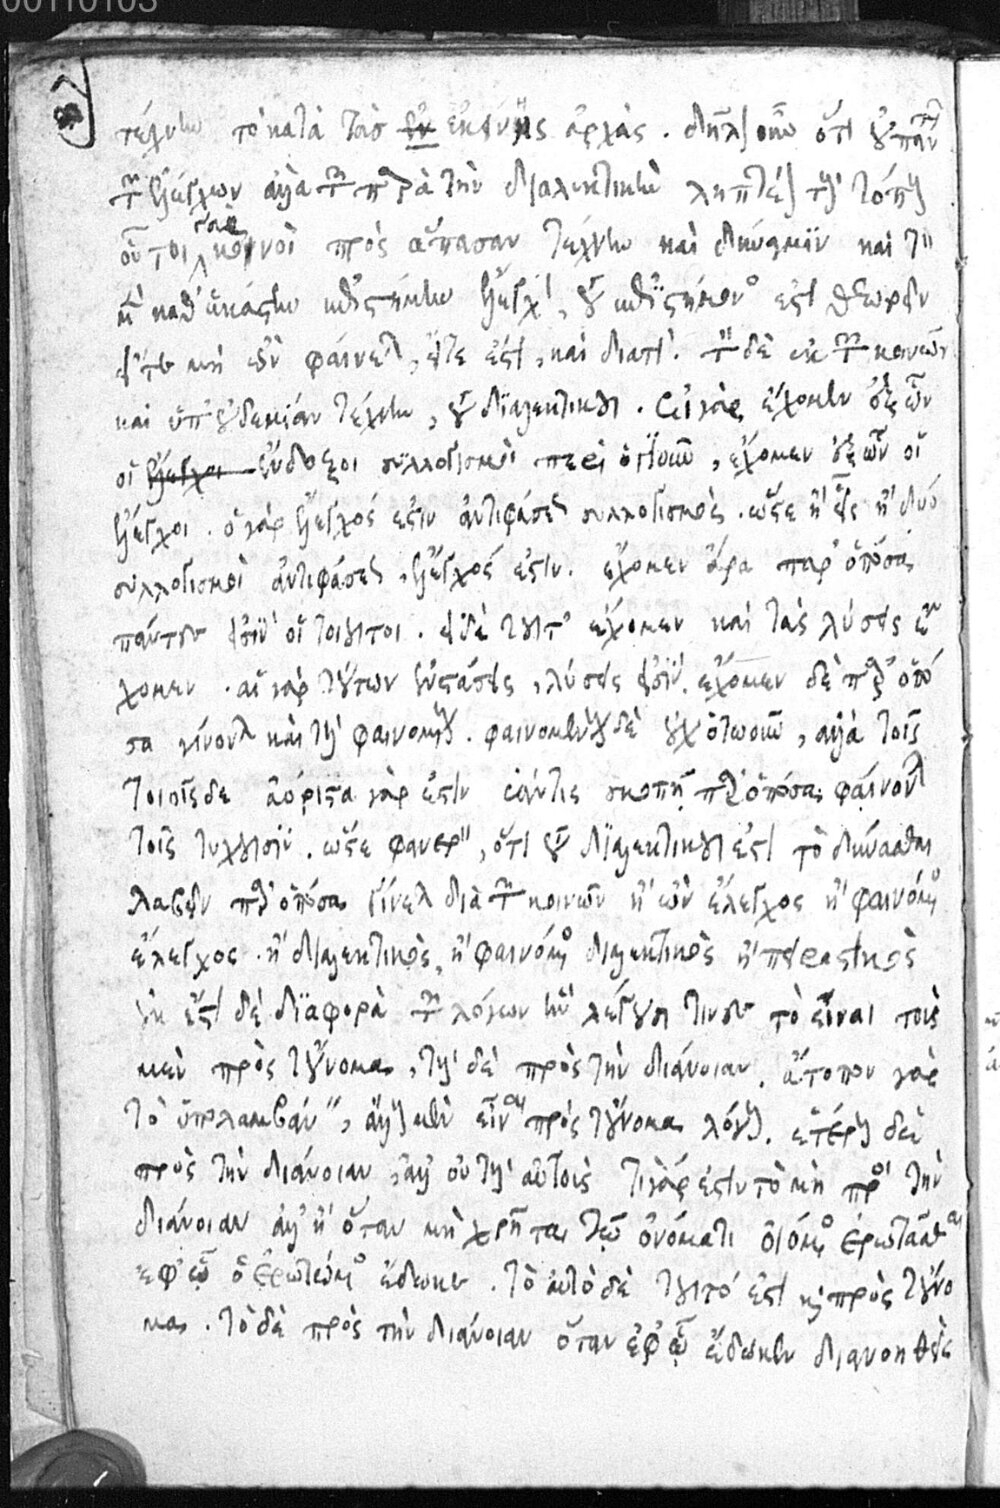 00110103
τέχνην το κατὰ τὰσ ἐν ἐκείνης ἀρχάς. δῆλον οὖν ὅτι οὐ πάντων
τῶν ἐλέγχων ἀλλὰ τῶν παρὰ τὴν διαλεκτικὴν ληπτέον τοὺς τόπους
οὗτοι γὰρ κοινοὶ πρὸς ἅπασαν τέχνην καὶ δύναμιν καὶ τὸν
μὲν καθ' ἑκάστην ἐπιστήμην ἔλεγχον, τοῦ ἐπιστήμονός ἐστι θεωρεῖν
εἴτε μὴ ὢν φαίνεται, εἴτε ἐστὶ, καὶ διατί. τὸν δὲ ἐκ τῶν κοινῶν
καὶ ὑπ' οὐδεμίαν τέχνην, τοῦ διαλεκτικοῦ. εἰ γὰρ ἔχομεν ἐξ ὧν
οἱ ἔλεγχοι ἔνδοξοι συλλογισμοὶ περὶ ὁτιοῦν, ἔχομεν ἐξ ὧν οἱ
ἔλεγχοι. ὁ γὰρ ἔλεγχός ἐστιν ἀντιφάσεως συλλογισμὸς. ὥστε ἢ εἷς ἢ δύο
συλλογισμοὶ ἀντιφάσεως, ἔλεγχός ἐστιν. ἔχομεν ἄρα παρ' ὁπόσα
πάντες εἰσὶν οἱ τοιοῦτοι. εἰ δὲ τοῦτ' ἔχομεν καὶ τὰς λύσεις ἔ
χομεν. αἱ γὰρ τούτων ἐνστάσεις, λύσεις εἰσίν. ἔχομεν δὲ παρ' ὁπό
σα γίνονται καὶ τοὺς φαινομένους. φαινομένους δὲ οὐχ ὁτωοῦν, ἀλλὰ τοῖς
τοιοῖσδε ἀόριστα γάρ ἐστιν ἐάν τις σκοπῇ παρ' ὁπόσα φαίνονται
τοῖς τυχοῦσιν. ὥστε φανερὸν, ὅτι τοῦ διαλεκτικοῦ ἐστὶ τὸ δύνασθαι
λαβεῖν παρ' ὁπόσα γίνεται διὰ τῶν κοινῶν ἢ ὢν ἔλεγχος ἢ φαινόμενος
ἔλεγχος. ἢ διαλεκτικὸς, ἢ φαινόμενος διαλεκτικὸς ἢ πειραστικὸς
οὐκ ἔστι δὲ διαφορὰ τῶν λόγων ἣν λέγουσι τινὲς τὸ εἶναι τοὺς
μὲν πρὸς τοὔνομα, τοὺς δὲ πρὸς τὴν διάνοιαν. ἄτοπον γὰρ
τὸ ὑπολαμβάνειν, ἄλλους μὲν εἶναι πρὸς τοὔνομα λόγους. ἑτέρους δὲ
πρὸς τὴν διάνοιαν, ἀλλ' οὐ τοὺς αὐτοὺς τί γάρ ἐστιν τὸ μὴ πρὸς τὴν
διάνοιαν ἀλλ' ἢ ὅταν μὴ χρῆται τῷ ὀνόματι οἰόμενος ἐρωτᾶσθαι
ἐφ' ᾧ ὁ ἐρωτώμενος ἔδωκεν. τὸ αὐτὸ δὲ τοῦτό ἐστι καὶ πρὸς τοὔνο
μα. τὸ δὲ πρὸς τὴν διάνοιαν ὅταν ἐφ' ᾧ ἔδωκεν διανοηθεὶς